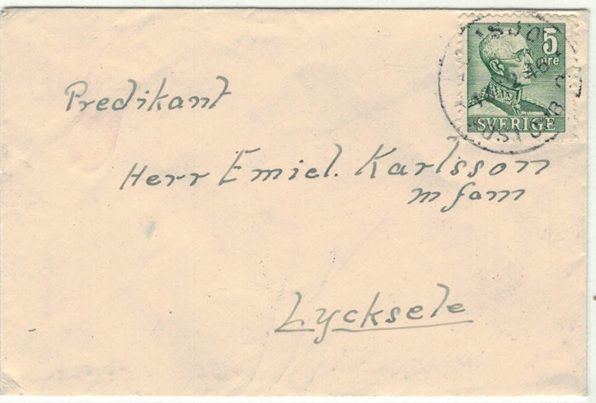 5
öre
SVERIGE
Predikant
Herr Emiel. Karlsson
m fam
Lycksele